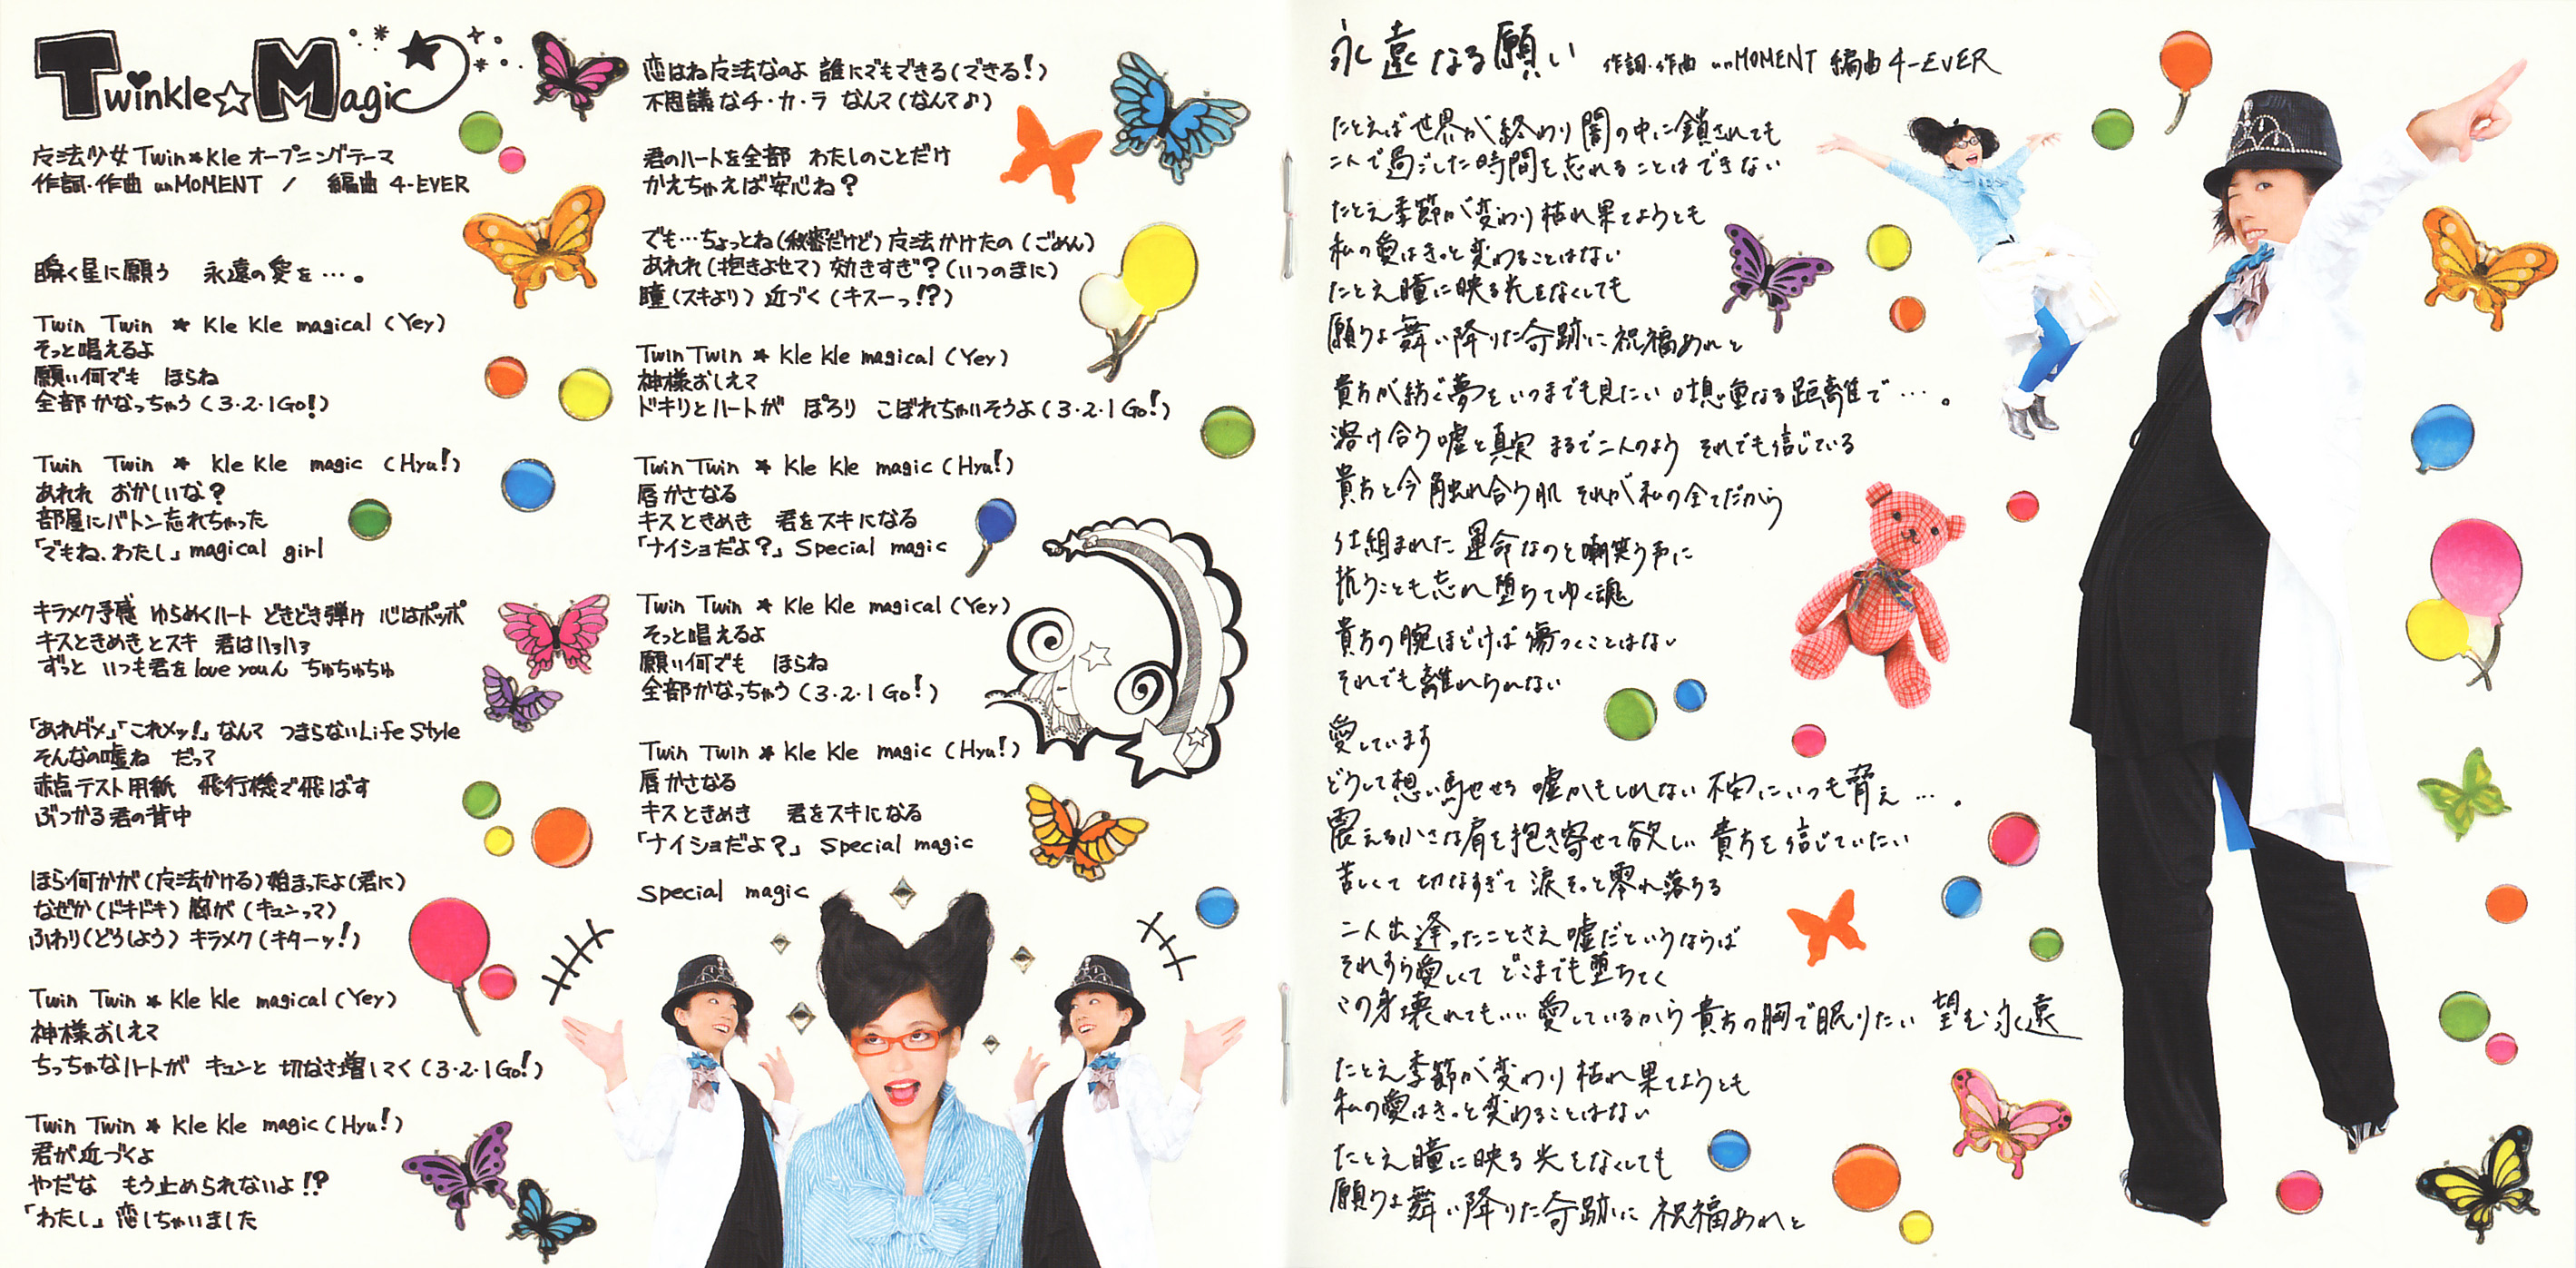 Twinkle☆Magic
魔法少女Twin★Kle オープニングテーマ
作詞・作曲 unMOMENT / 編曲 4-EVER
瞬く星に願う 永遠の愛を…。
Twin Twin ★ Kle Kle magical (Yey)
そっと唱えるよ
願い何でも ほらね
全部かなっちゃう (3・2・1 Go!)
Twin Twin ★ Kle Kle magic (Hyu!)
あれれ おかしいな?
部屋にバトン忘れちゃった
「でもね、わたし」magical girl
キラメク予感 ゆらめくハート どきどき弾け 心はポッポ
キスときめきとスキ 君はハラハラ
ずっと いつも君を love youん ちゅちゅちゅ
「あれダメ」「これメッ!」なんて つまらないLife Style
そんなの嘘ね だって
赤点テスト用紙 飛行機で飛ばす
ぶつかる君の背中
ほら何かが(魔法かける)始まったよ(君に)
なぜか(ドキドキ)胸が(キュンって)
ふわり(どうしよう)キラメク(キターッ!)
Twin Twin ★ Kle Kle magical (Yey)
神様おしえて
ちっちゃなハートが キュンと 切なさ増してく (3・2・1 Go!)
Twin Twin ★ Kle Kle magic (Hyu!)
君が近づくよ
やだな もう止められないよ!?
「わたし」恋しちゃいました
恋はね魔法なのよ 誰にでもできる(できる!)
不思議なチ・カ・ラ なんて(なんて♪)
君のハートを全部 わたしのことだけ
かえちゃえば安心ね?
でも…ちょっとね(秘密だけど)魔法かけたの(ごめん)
あれれ(抱きよせて)効きすぎ?(いつのまに)
瞳(スキより)近づく(キスーっ!?)
Twin Twin ★ Kle Kle magical (Yey)
神様おしえて
ドキリとハートが ぽろり こぼれちゃいそうよ (3・2・1 Go!)
Twin Twin ★ Kle Kle magic (Hyu!)
唇かさなる
キスときめき 君をスキになる
「ナイショだよ?」Special magic
Twin Twin ★ Kle Kle magical (Yey)
そっと唱えるよ
願い何でも ほらね
全部かなっちゃう (3・2・1 Go!)
Twin Twin ★ Kle Kle magic (Hyu!)
唇かさなる
キスときめき 君をスキになる
「ナイショだよ?」Special magic
special magic
永遠なる願い 作詞・作曲 unMOMENT 編曲 4-EVER
たとえば世界が終わり闇の中に鎖されても
二人で過ごした時間を忘れることはできない
たとえ季節が変わり枯れ果てようとも
私の愛はきっと変わることはない
たとえ瞳に映る光をなくしても
願うよ舞い降りた奇跡に祝福あれと
貴方が紡ぐ夢をいつまでも見たい 吐息重なる距離で…。
溶け合う嘘と真実 まるで二人のよう それでも信じている
貴方と今触れ合う肌 それが私の全てだから
仕組まれた運命なのと嘲笑う声に
抗うことも忘れ堕ちてゆく魂
貴方の腕ほどけば傷つくことはない
それでも離れられない
愛しています
どうして想い馳せる 嘘かもしれない 不安にいつも脅え…。
震える小さな肩を抱き寄せて欲しい 貴方を信じていたい
苦しくて 切なすぎて 涙そっと零れ落ちる
二人出逢ったことさえ嘘だというならば
それすら愛しくて どこまでも堕ちてく
この身壊れてもいい 愛しているから 貴方の胸で眠りたい 望む永遠
たとえ季節が変わり枯れ果てようとも
私の愛はきっと変わることはない
たとえ瞳に映る光をなくしても
願うよ舞い降りた奇跡に祝福あれと